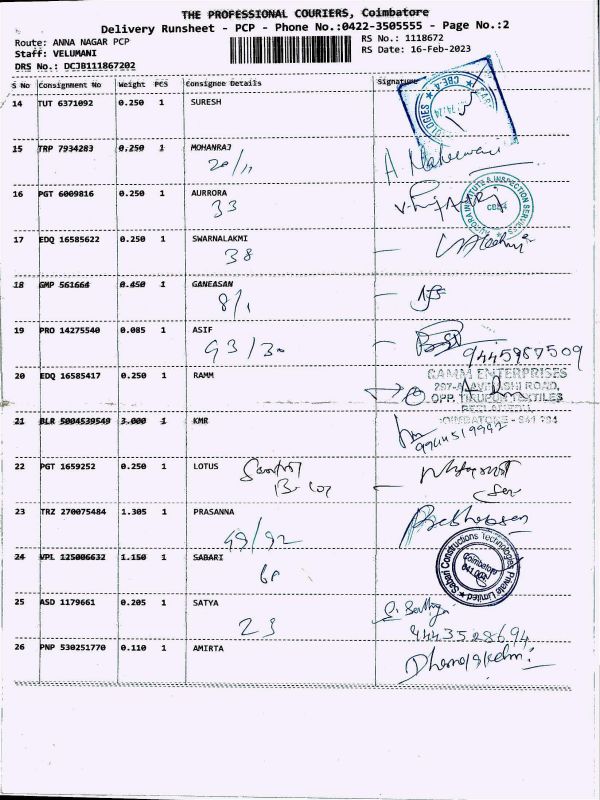 THE PROFESSIONAL COURIERS, Coimbatore
Delivery Runsheet - PCP - Phone No.:0422-3505555 - Page No.:2
Route: ANNA NAGAR PCP
RS No.: 1118672
Staff: VELUMANI
RS Date: 16-Feb-2023
DRS No.: DCJB111867202
S No Consignment No Weight PCS Consignee Details Signature
14 TUT 6371092 0.250 1 SURESH
CBE-4
15 TRP 7934283 0.250 1 MOHANRAJ
20/11
A. Maheswari
16 PGT 6009816 0.250 1 AURRORA
33
AURORA INSTITUTE & INSPECTION SERVICES
CBE-4
17 EDQ 16585622 0.250 1 SWARNALAKMI
38
18 GMP 561664 0.450 1 GANEASAN
8/1
19 PRO 14275540 0.085 1 ASIF
93/30
9445967509
20 EDQ 16585417 0.250 1 RAMM
RAMM ENTERPRISES
ROAD,
OPP. TIRUPUR TEXTILES
COIMBATORE - 641
21 BLR 5004539549 3.000 1 KMR
9944519992
22 PGT 1659252 0.250 1 LOTUS
23 TRZ 270075484 1.305 1 PRASANNA
49/92
24 VPL 125006632 1.150 1 SABARI
60
Sabari Constructions Technologies Private Limited
Coimbatore
25 ASD 1179661 0.205 1 SATYA
23
9443528694
26 PNP 530251770 0.110 1 AMIRTA